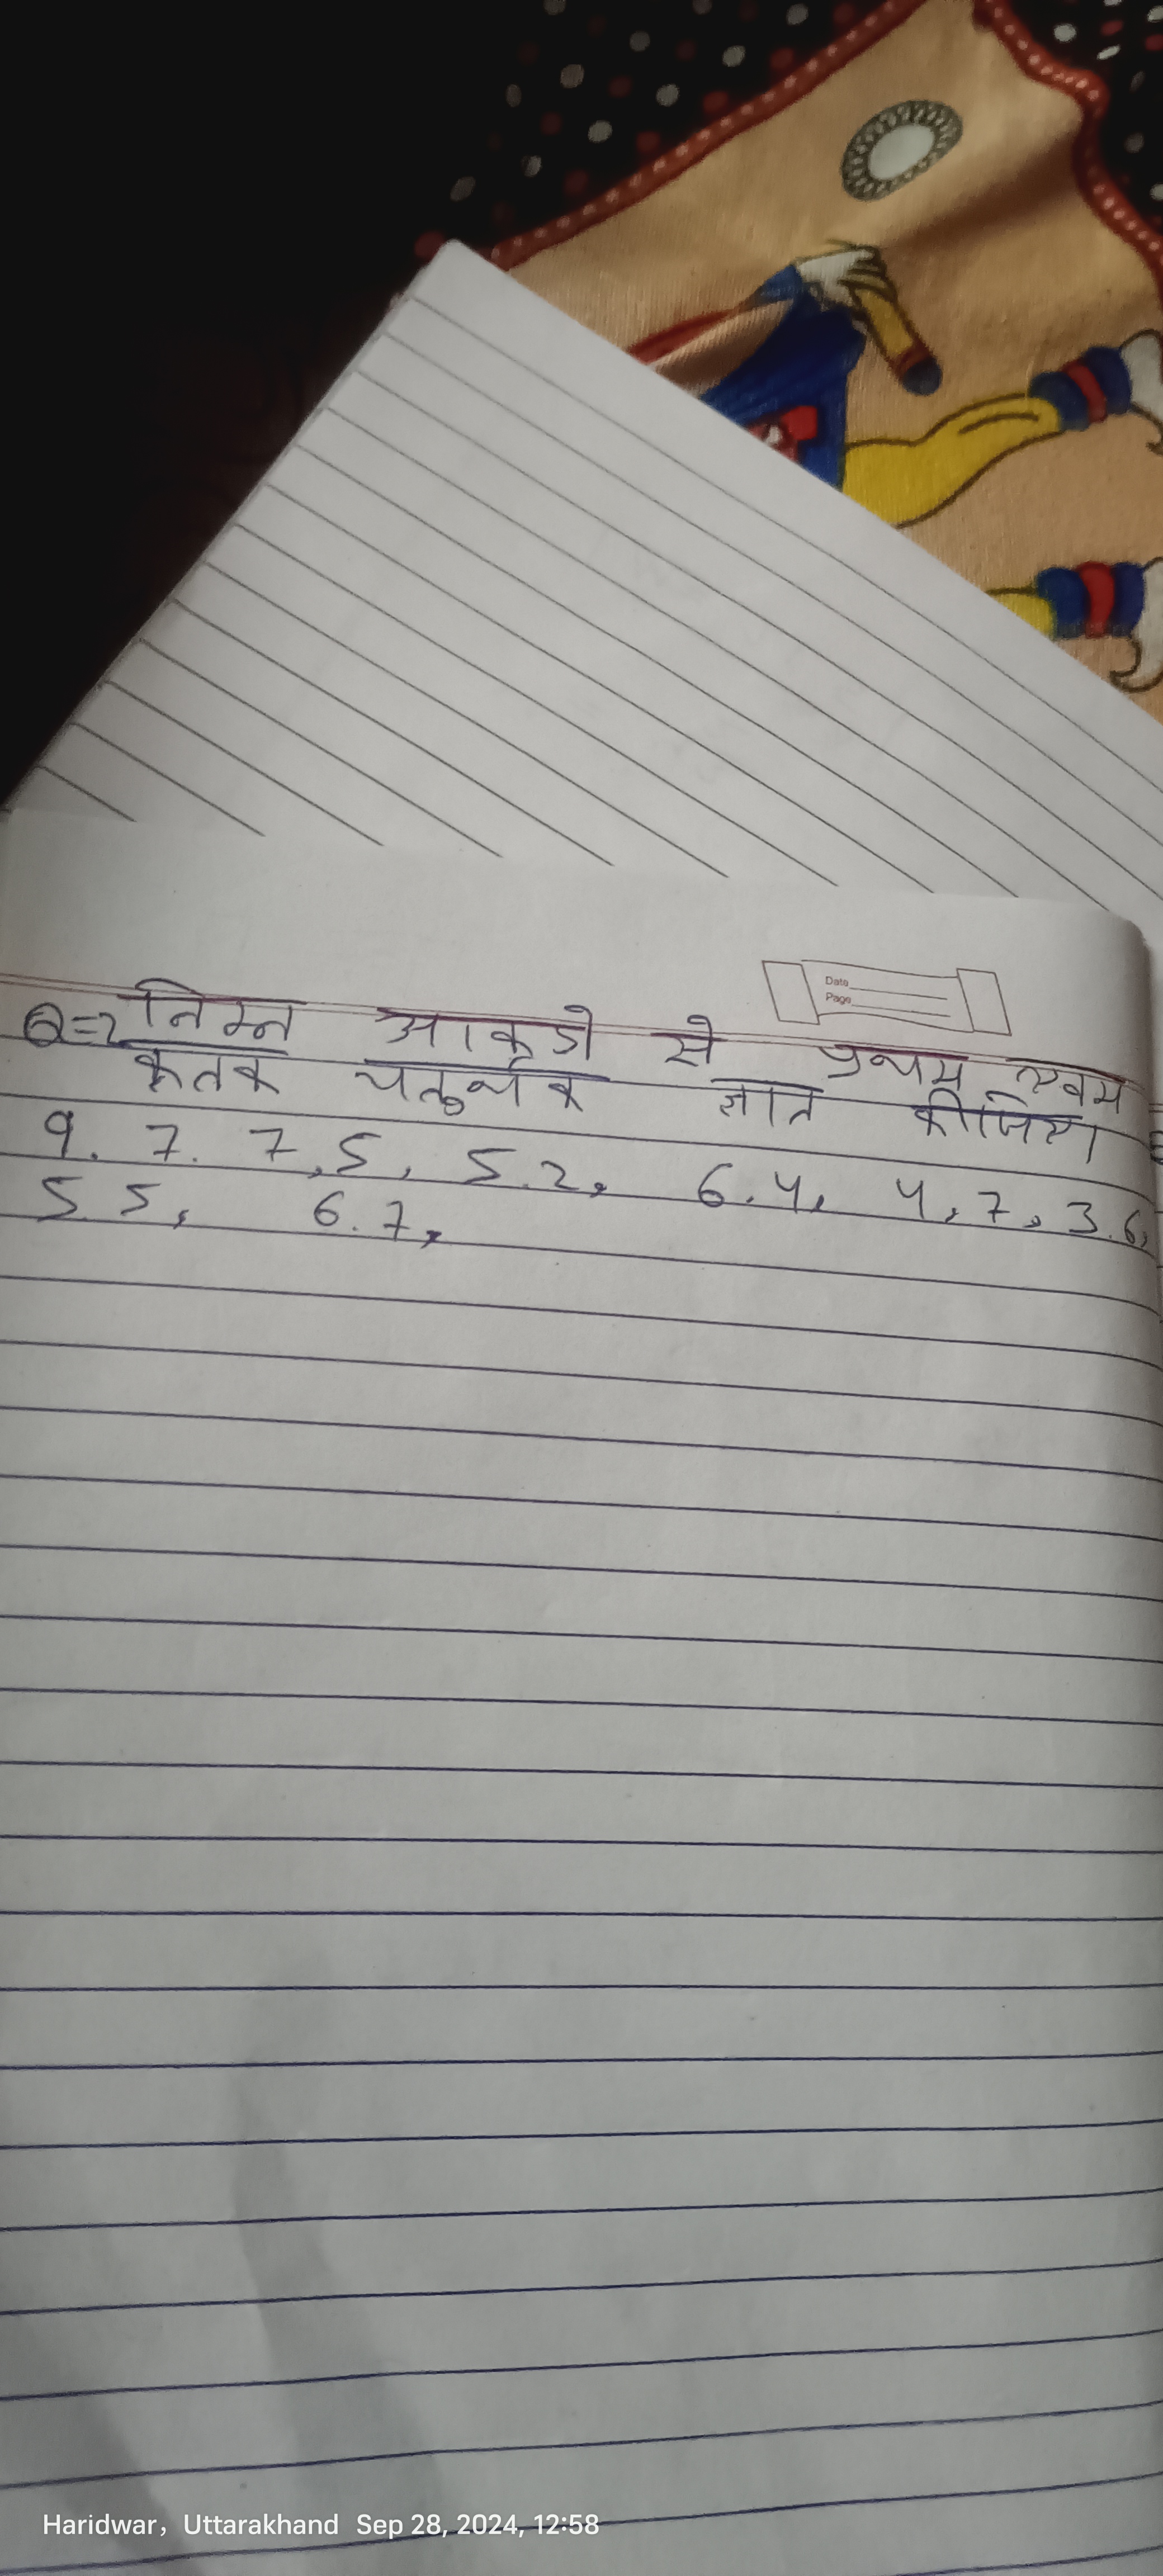 Date
Page
Q=2 निम्न आकडो से प्रथम एवम
कतक चतुर्थक ज्ञात कीजिए।
9. 7. 7,5, 5.2, 6.4, 4,7, 3.6,
5.5, 6.7,
Haridwar, Uttarakhand Sep 28, 2024, 12:58